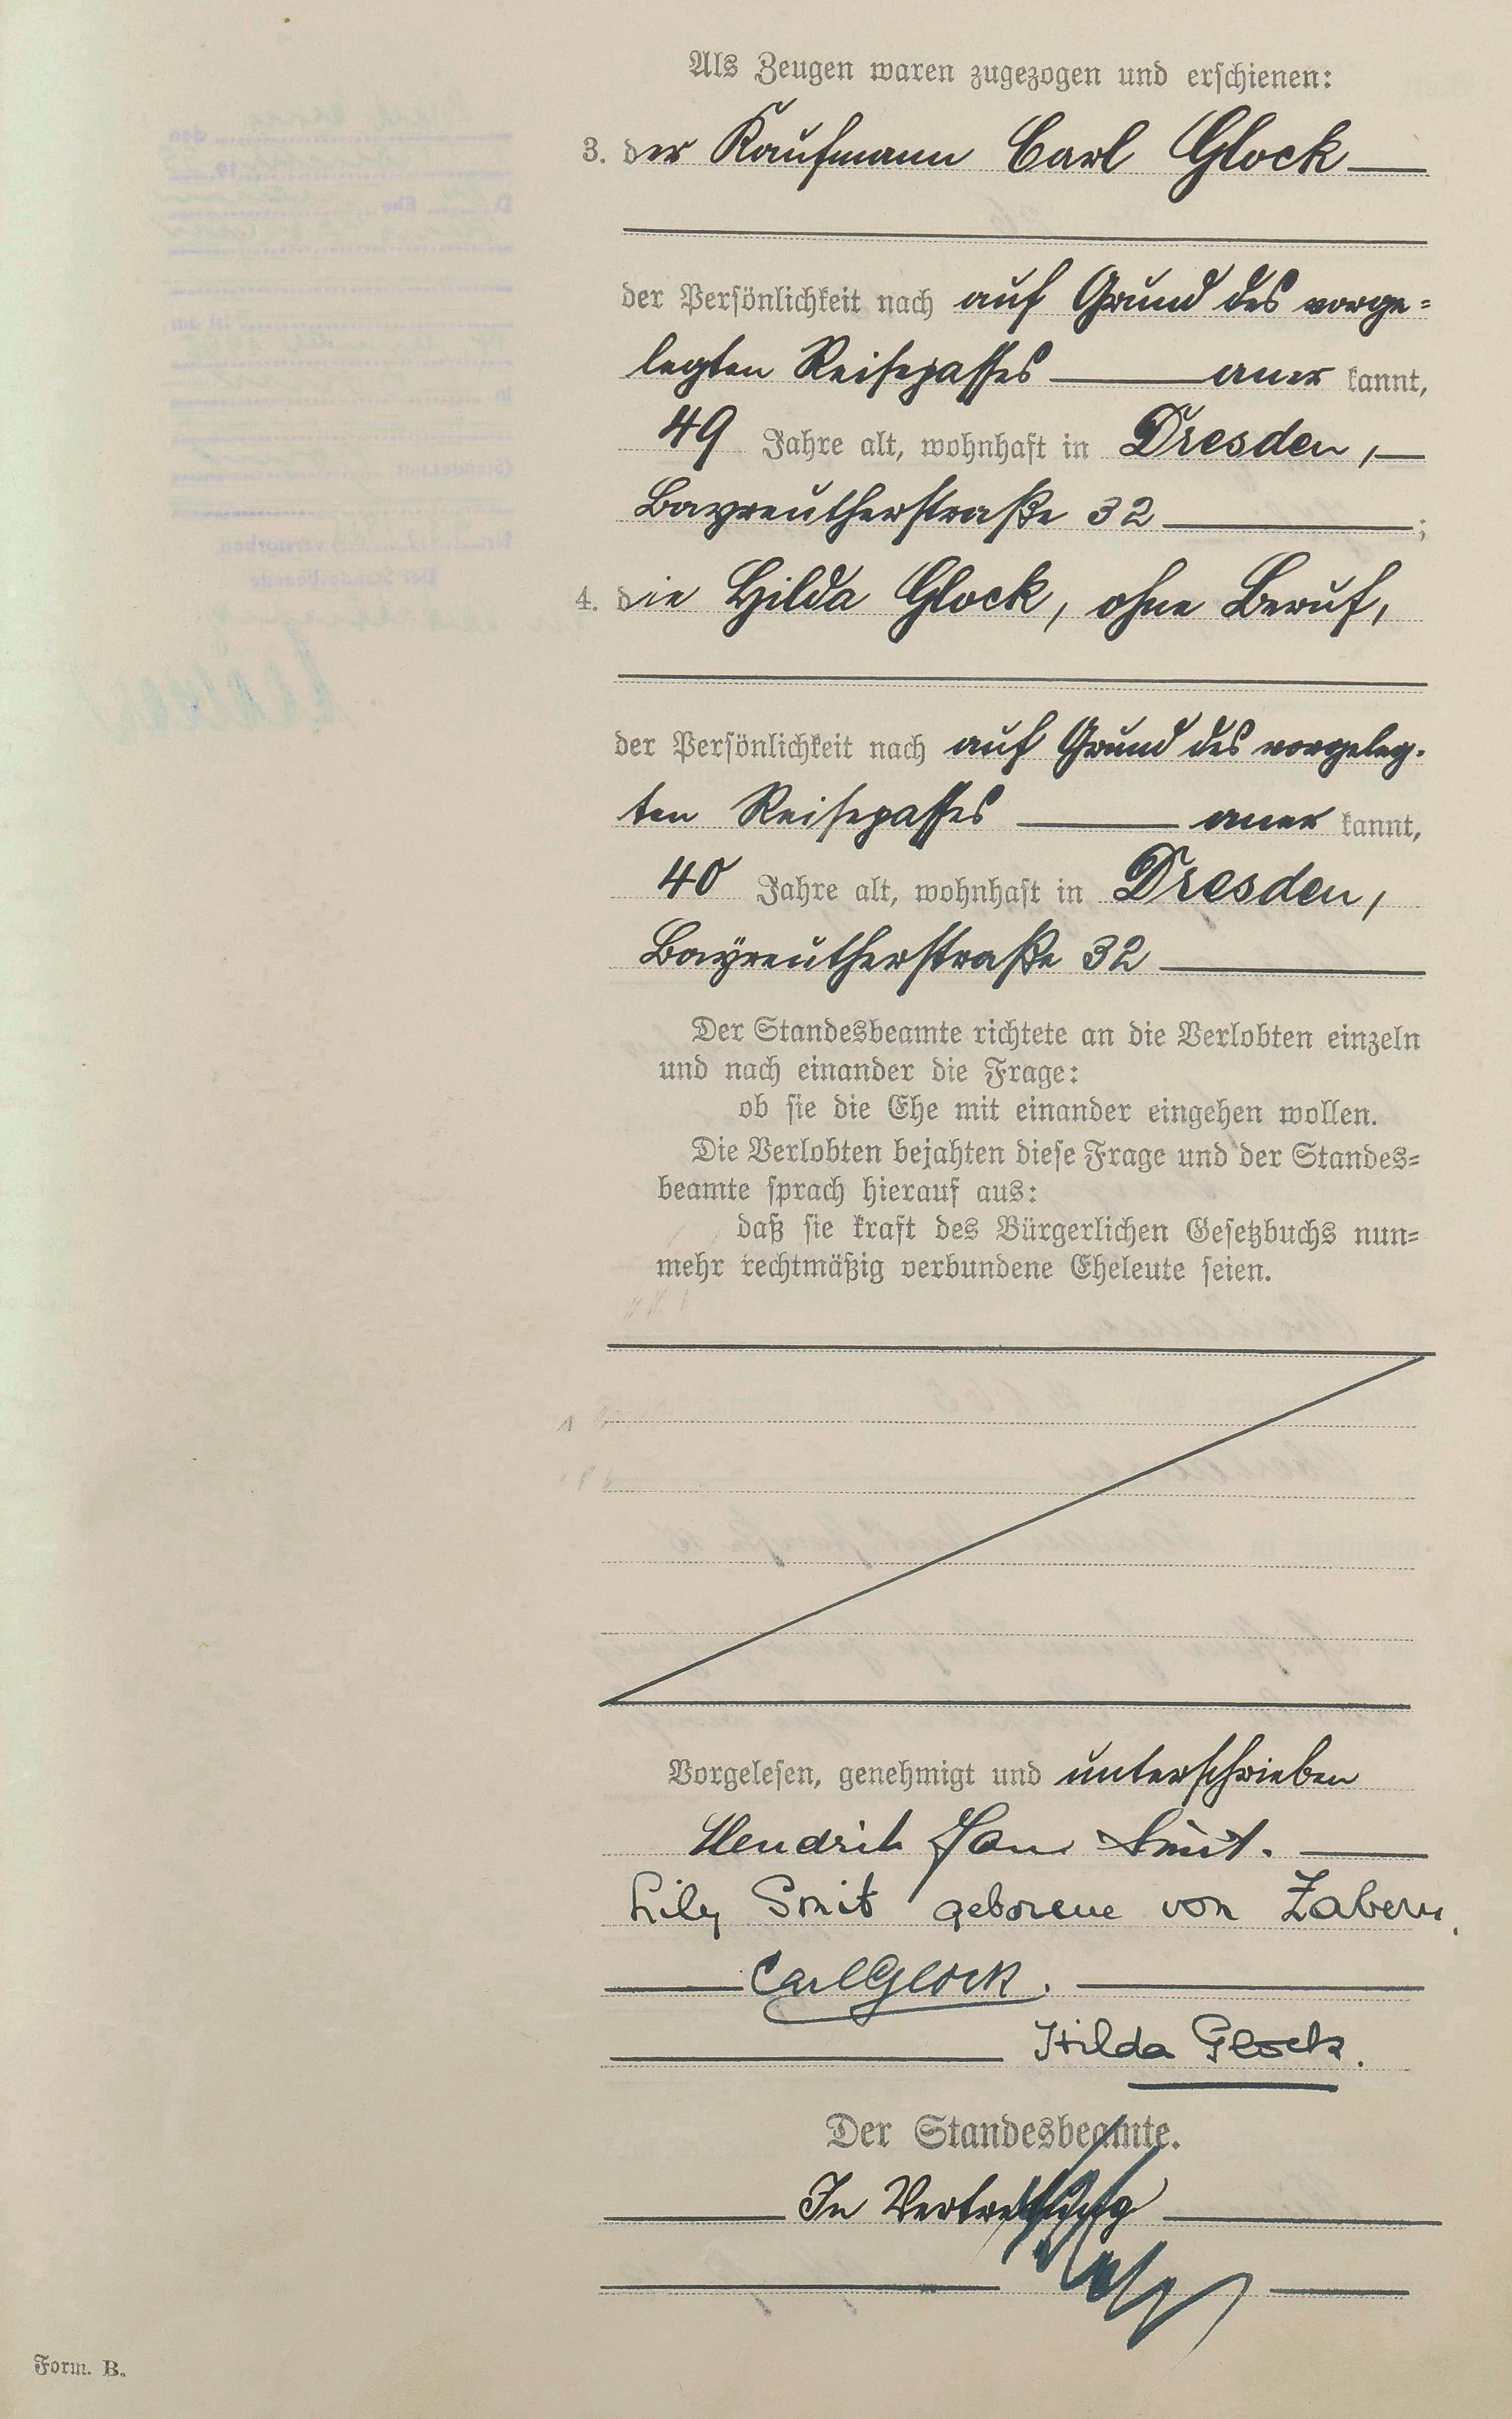 Als Zeugen waren zugezogen und erschienen:
3. der Kaufmann Carl Glock
der Persönlichkeit nach auf Grund des vorge=
legten Reisepasses aner kannt,
49 Jahre alt, wohnhaft in Dresden,
Bayreutherstraße 32 ;
4. die Hilda Glock, ohne Beruf,
der Persönlichkeit nach auf Grund des vorgeleg-
ten Reisepasses aner kannt,
40 Jahre alt, wohnhaft in Dresden,
Bayreutherstraße 32
Der Standesbeamte richtete an die Verlobten einzeln
und nach einander die Frage:
ob sie die Ehe mit einander eingehen wollen.
Die Verlobten bejahten diese Frage und der Standes=
beamte sprach hierauf aus:
daß sie kraft des Bürgerlichen Gesetzbuchs nun=
mehr rechtmäßig verbundene Eheleute seien.
Vorgelesen, genehmigt und unterschrieben
Hendrik Jan Smit.
Lily Smit geborene von Zabern.
Carl Glock.
Hilda Glock.
Der Standesbeamte.
In Vertretung
Form. B.